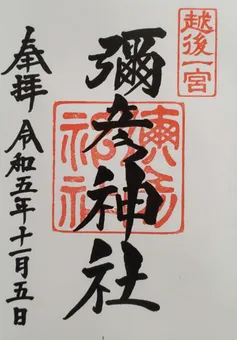 越後一宮
彌彦神社
奉拝
令和五年十一月五日